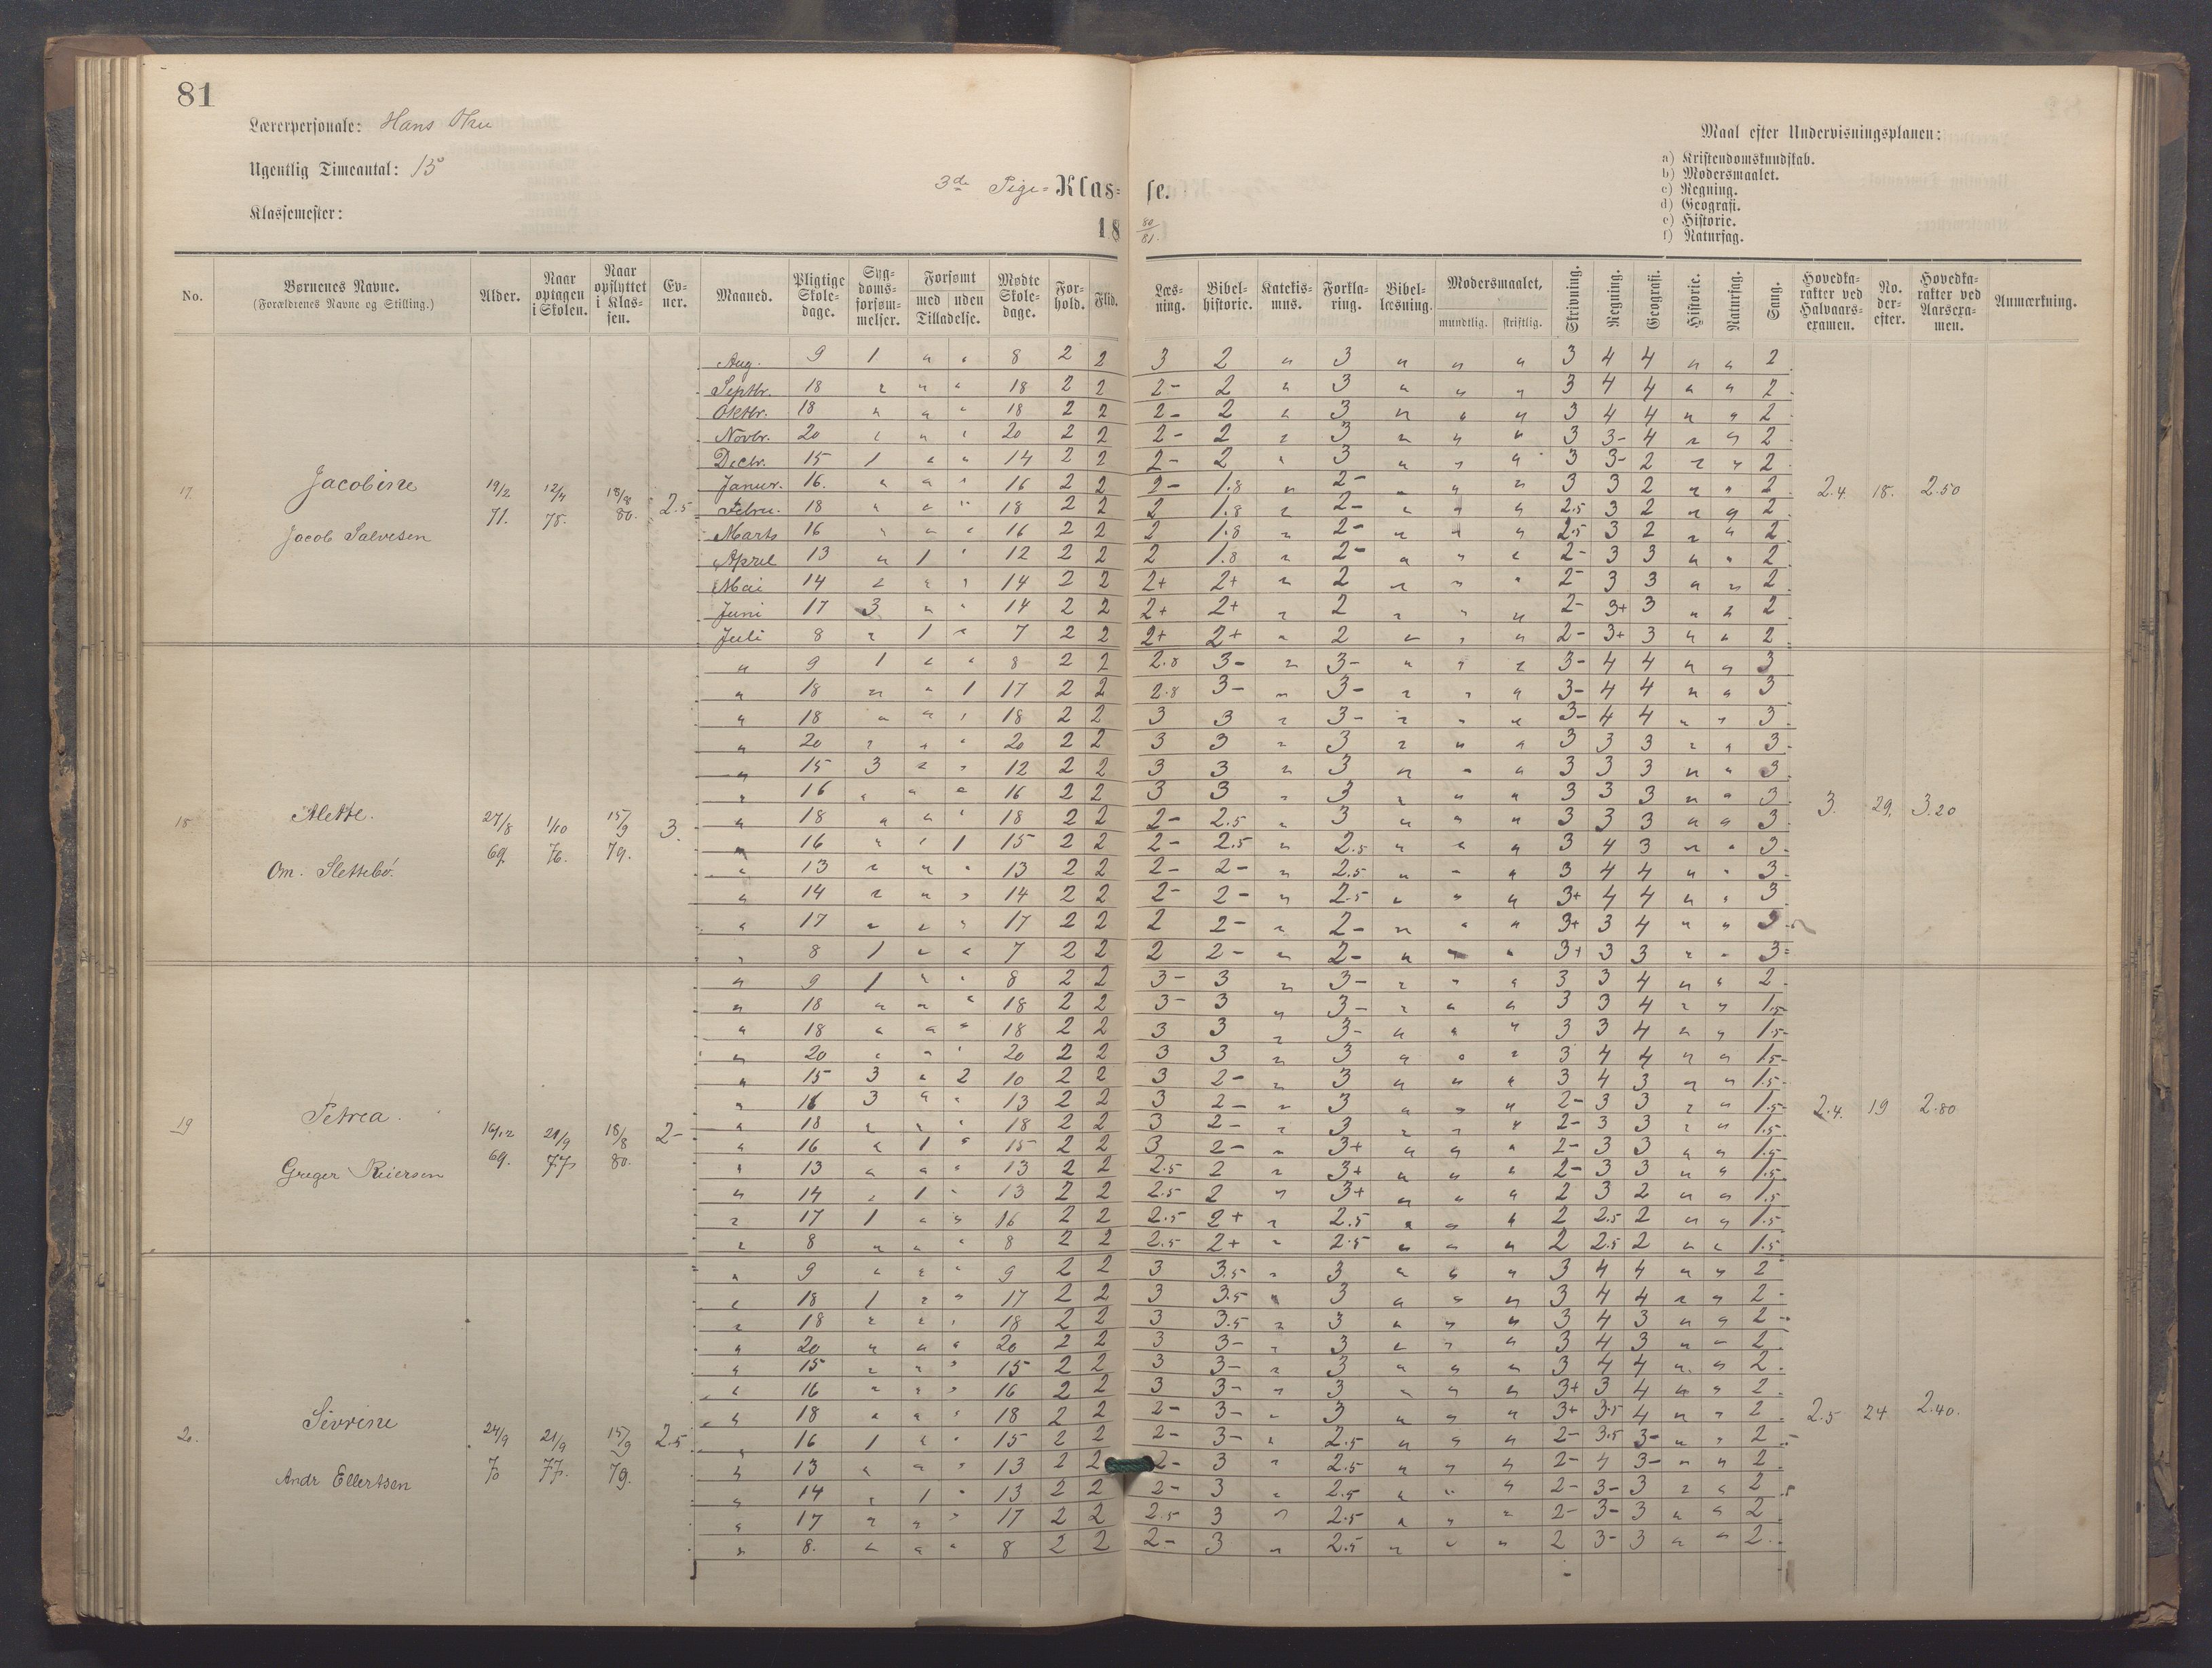 81
Lærerpersonale: Hans
Ugentlig Timeantal: 15
Klassemester:
3de Pige= Klas= se.
18 80/81.
Maal efter Undervisningsplanen:
a) Kristendomskundskab.
b) Modersmaalet.
c) Regning.
d) Geografi.
e) Historie.
f) Naturfag.
No. Børnenes Navne. (Forældrenes Navne og Stilling.) Alder. Naar optagen i Skolen. Naar opflyttet i Klas-sen. Ev-ner. Maaned. Pligtige Skole-dage. Syg-doms-forsøm-melser. Forsømt med uden Tilladelse. Mødte Skole-dage. For-hold. Flid. Læs-ning. Bibel-historie. Katekis-mus. Forkla-ring. Bibel-læsning. Modersmaalet, mundtlig. skriftlig. Skrivning. Regning. Geografi. Historie. Naturfag. Sang. Hovedka-rakter ved Halvaars-examen. No. der-efter. Hovedka-rakter ved Aarsexa-men. Anmærkning.
17. Jacobine Jacob Salvesen 19/2 71. 12/4 78. 18/8 80. 2.5 2.4. 18. 2.50
Aug. 9 1 " " 8 2 2 3 2 " 3 " " " 3 4 4 " " 2
Septbr. 18 " " " 18 2 2 2- 2 " 3 " " " 3 4 4 " " 2
Oktbr. 18 " " " 18 2 2 2- 2 " 3 " " " 3 4 4 " " 2
Novbr. 20 " " " 20 2 2 2- 2 " 3 " " " 3 3- 4 " " 2
Decbr. 15 1 " " 14 2 2 2- 2 " 3 " " " 3 3- 2 " " 2
Januar. 16. " " " 16 2 2 2- 1.8 " 2- " " " 3 3 2 " " 2
Febru. 18 " " " 18 2 2 2 1.8 " 2- " " " 2.5 3 2 " " 2
Marts 16 " " " 16 2 2 2 1.8 " 2- " " " 2.5 3 2 " " 2
April 13 " 1 " 12 2 2 2 1.8 " 2- " " " 2- 3 3 " " 2
Mai 14 " " " 14 2 2 2+ 2+ " 2 " " " 2- 3 3 " " 2
Juni 17 3 " " 14 2 2 2+ 2+ " 2 " " " 2- 3+ 3 " " 2
Juli 8 " 1 " 7 2 2 2+ 2+ " 2 " " " 2- 3+ 3 " " 2
18 Alette. Om. Slettebö. 27/8 69. 1/10 76. 15/9 79. 3. 3. 29, 3.20
" 9 1 " " 8 2 2 2.8 3- " 3- " " " 3- 4 4 " " 3
" 18 " " 1 17 2 2 2.8 3- " 3- " " " 3- 4 4 " " 3
" 18 " " " 18 2 2 3 3 " 3- " " " 3- 4 4 " " 3
" 20 " " " 20 2 2 3 3 " 3 " " " 3 3 3 " " 3
" 15 3 " " 12 2 2 3 3 " 3 " " " 3 3 3 " " 3
" 16 " " " 16 2 2 3 3 " 3 " " " 3 3 3 " " 3
" 18 " " " 18 2 2 2- 2.5 " 3 " " " 3 3 3 " " 3
" 16 " " 1 15 2 2 2- 2.5 " 2.5 " " " 3 4 3 " " 3
" 13 " " " 13 2 2 2- 2- " 2.5 " " " 3 4 4 " " 3
" 14 " " " 14 2 2 2- 2- " 2.5 " " " 3+ 4 4 " " 3
" 17 " " " 17 2 2 2 2- " 2- " " " 3+ 3 4 " " 3
" 8 1 " " 7 2 2 2 2- " 2- " " " 3+ 3 3 " " 3
19 Petrea. Greger Reiersen 16/12 69. 21/9 77. 18/8 80. 2- 2.4. 19 2.80
" 9 1 " " 8 2 2 3- 3 " 3- " " " 3 3 4 " " 2
" 18 " " " 18 2 2 3- 3 " 3- " " " 3 3 4 " " 1.5
" 18 " " " 18 2 2 3 3 " 3- " " " 3 3 4 " " 1.5
" 20 " " " 20 2 2 3 3 " 3 " " " 3 4 4 " " 1.5
" 15 3 " 2 10 2 2 3 2- " 3 " " " 3 4 3 " " 1.5
" 16 3 " " 13 2 2 3 2- " 3 " " " 2- 3 3 " " 1.5
" 18 " " " 18 2 2 3 2- " 3 " " " 2- 3 3 " " 1.5
" 16 " 1 " 15 2 2 3 2- " 3+ " " " 2- 3 3 " " 1.5
" 13 " " " 13 2 2 2.5 2 " 3+ " " " 2- 3 3 " " 1.5
" 14 " 1 " 13 2 2 2.5 2 " 3+ " " " 2 3 2 " " 1.5
" 17 1 " " 16 2 2 2.5 2+ " 2.5 " " " 2 2.5 2 " " 1.5
" 8 " " " 8 2 2 2.5 2+ " 2.5 " " " 2 2.5 2 " " 1.5
20. Sivrine Andr Ellertsen 24/9 70 21/9 77. 15/9 79. 2.5 2.5 24 2.40.
" 9 " " " 9 2 2 3 3.5 " 3 " " " 3 4 4 " " 2
" 18 1 " " 17 2 2 3 3.5 " 3 " " " 3 4 4 " " 2
" 18 " " " 18 2 2 3 3.5 " 3 " " " 3 4 3 " " 2
" 20 " " " 20 2 2 3 3- " 3 " " " 3 4 3 " " 2
" 15 " " " 15 2 2 3 3- " 3 " " " 3 4 4 " " 2
" 16 " " " 16 2 2 3 3- " 3 " " " 3+ 3 4 " " 2
" 18 " " " 18 2 2 2- 3- " 3 " " " 3+ 3.5 4 " " 2
" 16 1 " " 15 2 2 2- 3- " 2.5 " " " 2- 3.5 3- " " 2
" 13 " " " 13 2 2 2- 3 " 2.5 " " " 2- 4 3- " " 2
" 14 " 1 " 13 2 2 2- 3 " 2.5 " " " 2- 3- 3 " " 2
" 17 " " " 17 2 2 2.5 3 " 2.5 " " " 2- 3- 3 " " 2
" 8. " " " 8 2 2 2- 3 " 2.5 " " " 2 3- 3 " " 2